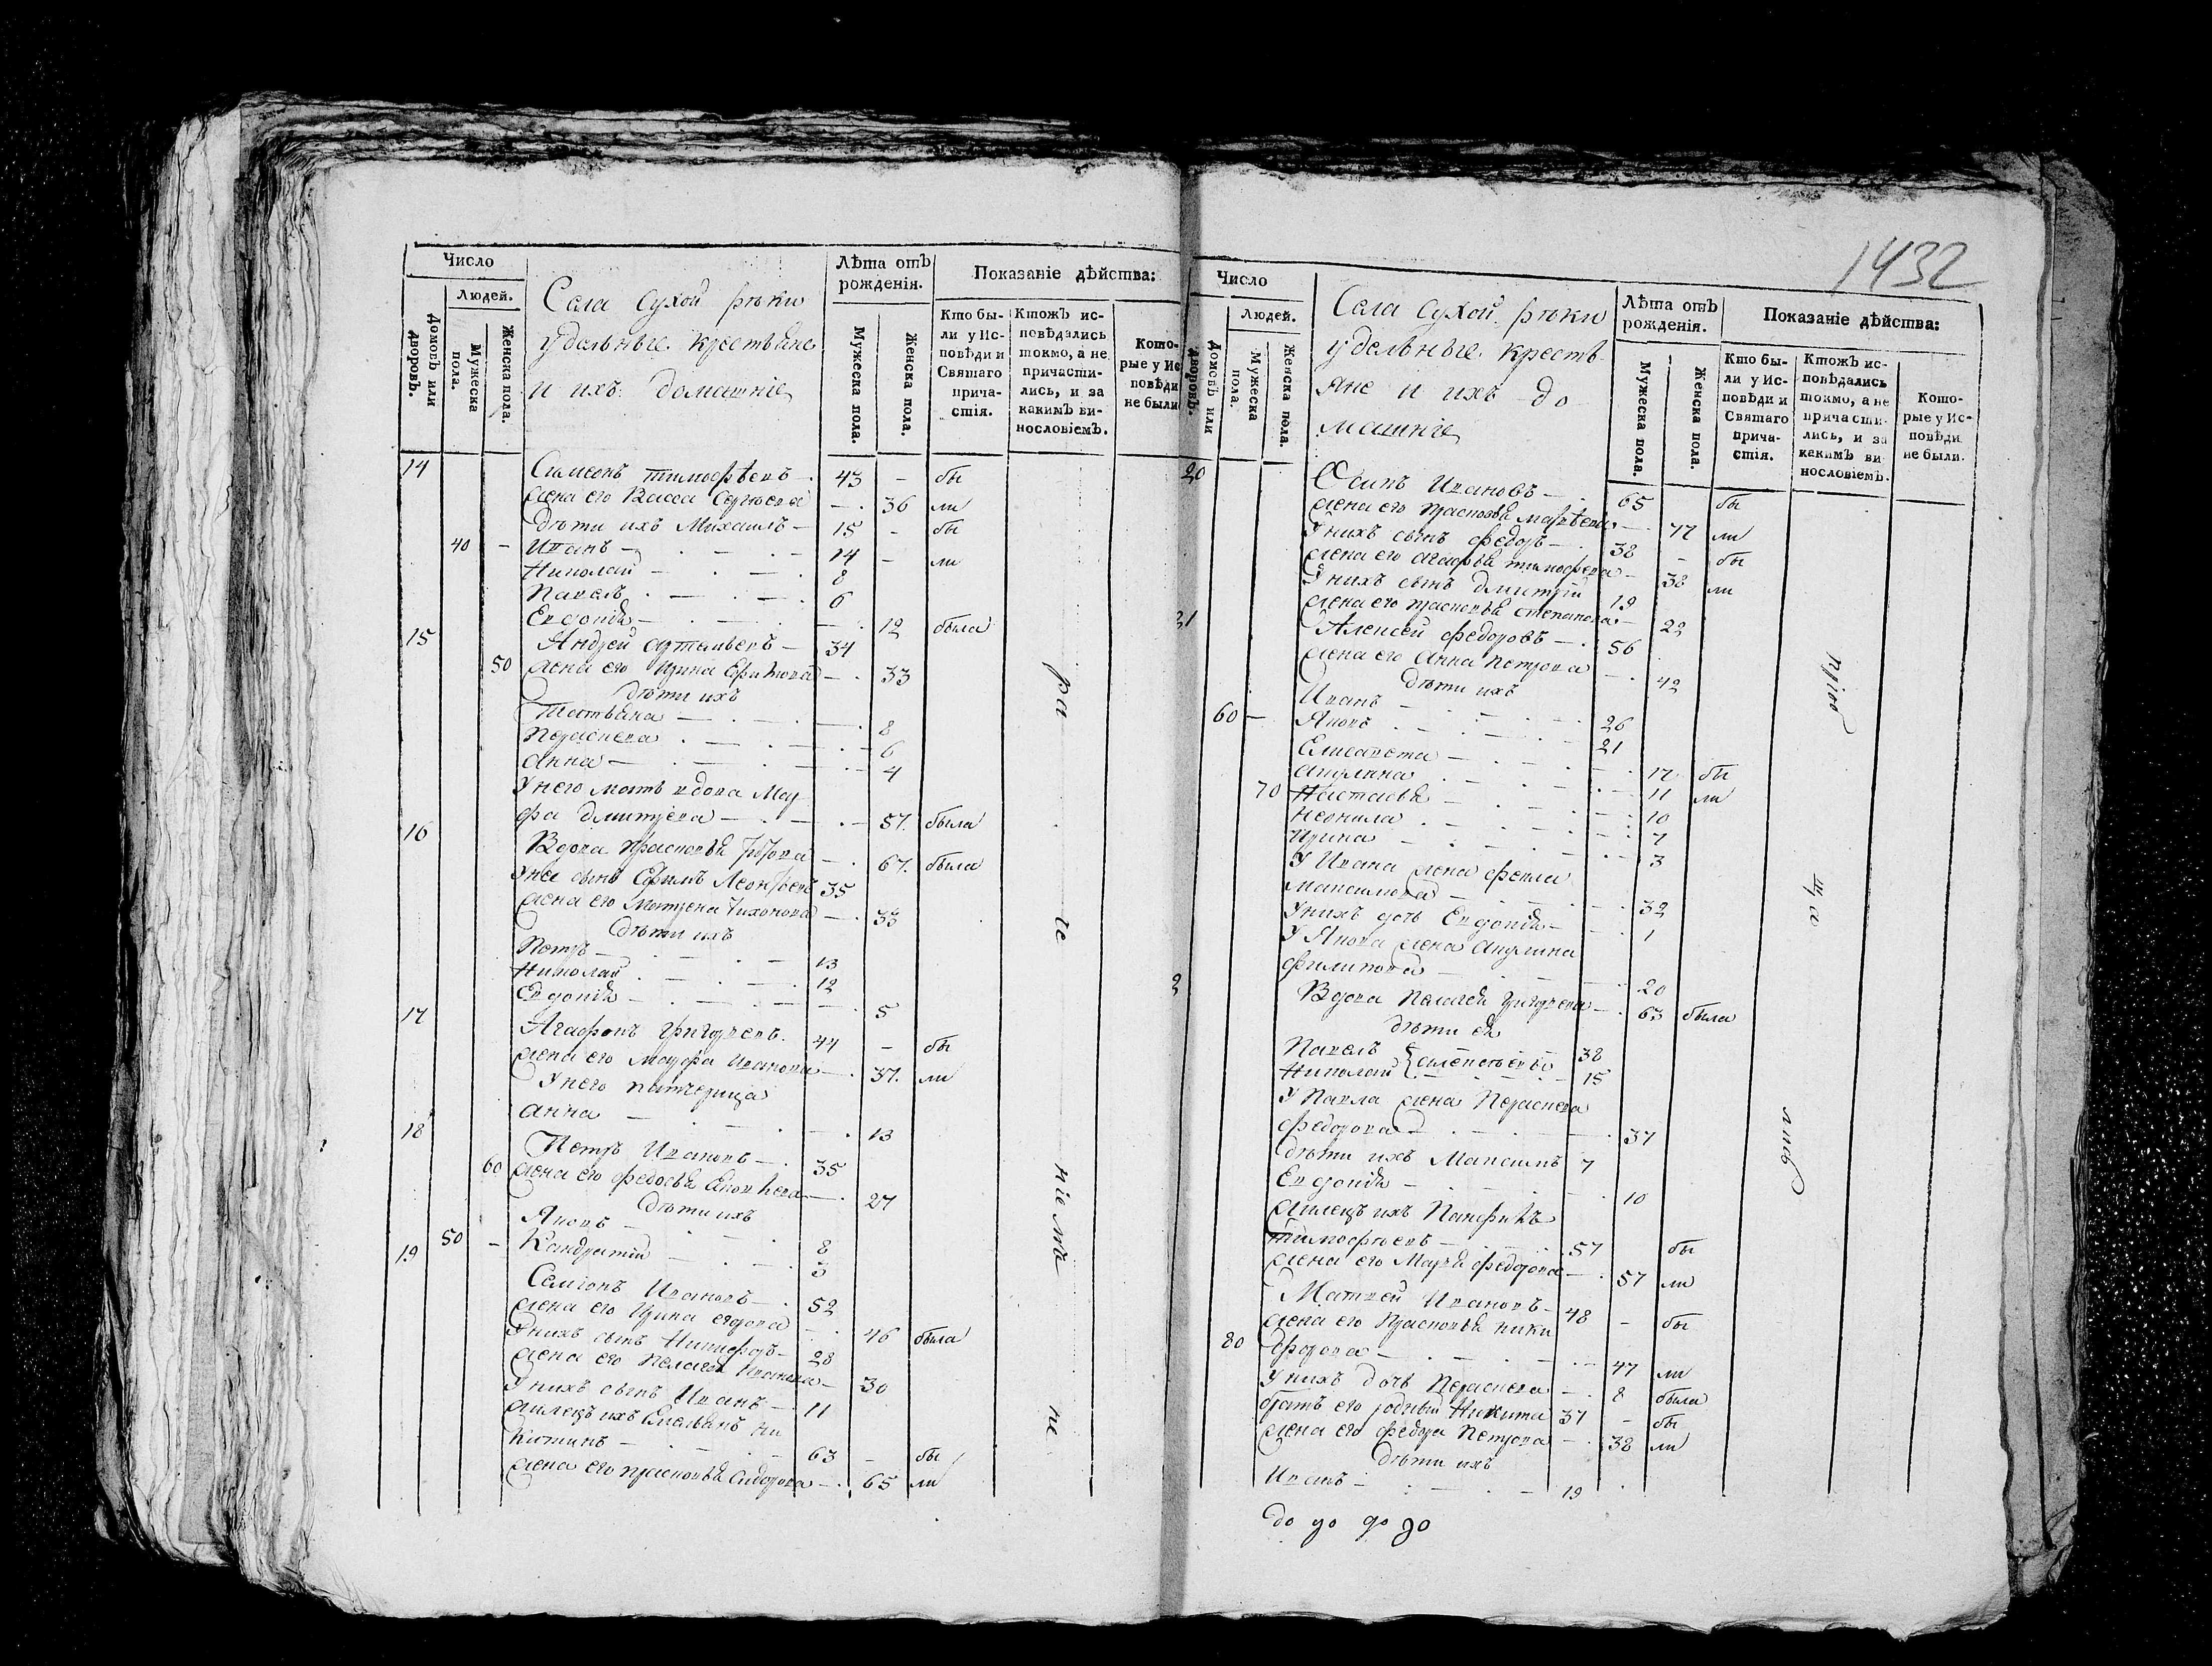 1432
Число
Людей.
Домовъ или дворовъ.
Мужеска пола.
Женска пола.
Села Сухой рѣки
удельные крестьяне
и ихъ домашніе
Лѣта отъ рожденія.
Мужеска пола.
Женска пола.
Показаніе дѣйства:
Кто были у Исповѣди и Святаго причастія.
Ктожъ исповѣдались токмо, а не причастились, и за какимъ винословіемъ.
Которые у Исповѣди не были
14 Симеонъ Тимофѣевъ 43 - бы
жена его Васса Сергѣева 36 ли
дѣти ихъ Михаилъ 15 - бы
40 - Иванъ 14 - ли
Николай 8
Павелъ 6
Евдокія 12 была
15 Андрей Артемьевъ 34
50 жена его Ирина Ефимова 33
дѣти ихъ
Татьяна 8
Параскева 6
Анна 4
У него мать вдова Мар
фа Дмитрева 57 была
16 Вдова Прасковья 67 была
У нея сынъ Ефимъ Леонтьевъ 35
жена его Матрена Тихонова 33
дѣти ихъ
Петръ 13
Николай 12
Евдокія 5
17 Агафонъ Григорьевъ 44 - бы
жена его Марфа Иванова 37 ли
У него патчерица
Анна 13
18 Петръ Ивановъ 35
60 жена его Федосья 27
дѣти ихъ
Яковъ 8
50 - Кондратій 3
19 Семіонъ Ивановъ 52
жена его Ирина 46 была
У нихъ сынъ Никифоръ 28
жена его Пелагея Иванова 30
У нихъ сынъ Иванъ 11
ихъ Емельянъ Ни
китинъ 63 - бы
жена его Прасковья Сидорова 65 ли
ра
че
ніемъ
не
Число
Людей.
Домовъ или дворовъ.
Мужеска пола.
Женска пола.
Села Сухой рѣки
удельные кресть
яне и ихъ до
машніе
Лѣта отъ рожденія.
Мужеска пола.
Женска пола.
Показаніе дѣйства:
Кто были у Исповѣди и Святаго причастія.
Ктожъ исповѣдались токмо, а не причастились, и за какимъ винословіемъ.
Которые у Исповѣди не были.
20 Осипъ Ивановъ 65 бы
жена его Прасковья 77 ли
У нихъ сынъ Федоръ 38 - бы
жена его Агафья Тимофеева 38 ли
У нихъ сынъ Дмитрій 19
жена его Прасковья Степанова 22
21 Алексей Федоровъ 56
жена его Анна Петрова 42
дѣти ихъ
Иванъ 26
60 - Яковъ 21
Елисавета 17 бы
Акулина 11 ли
70 Настасья 10
Неонила 7
Ирина 3
У Ивана жена Фекла
Максимова 32
У нихъ дочь Евдокія 1
У Якова жена Акулина
Филипова 20
2 Вдова Пелагея Григорьева 63 была
дѣти ея
Павелъ 38
Николай 15
У Павла жена Параскева
Федорова 37
дѣти ихъ Максимъ 7
Евдокія 10
ихъ Памфилъ
Тимофѣевъ 57 бы
жена его Марья Федорова 57 ли
Матвей Ивановъ 48 - бы
жена его Прасковья Ники
80 форова 47 ли
У нихъ дочь Параскева 8 была
братъ его родный Никита 37 - бы
жена его Федора Петрова 38 ли
дѣти ихъ
Иванъ 19
прио
ща
лись